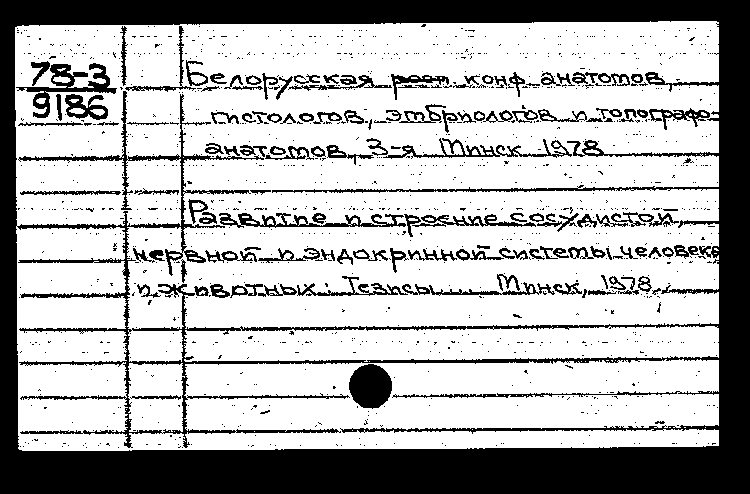 78-3
9186
Белорусская респ. конф. анатомов,
гистологов, эмбриологов и топографо-
анатомов, 3-я Минск 1978
Развитие и строение сосудистой,
нервной и эндокринной системы человека
и животных: Тезисы.... Минск, 1978.